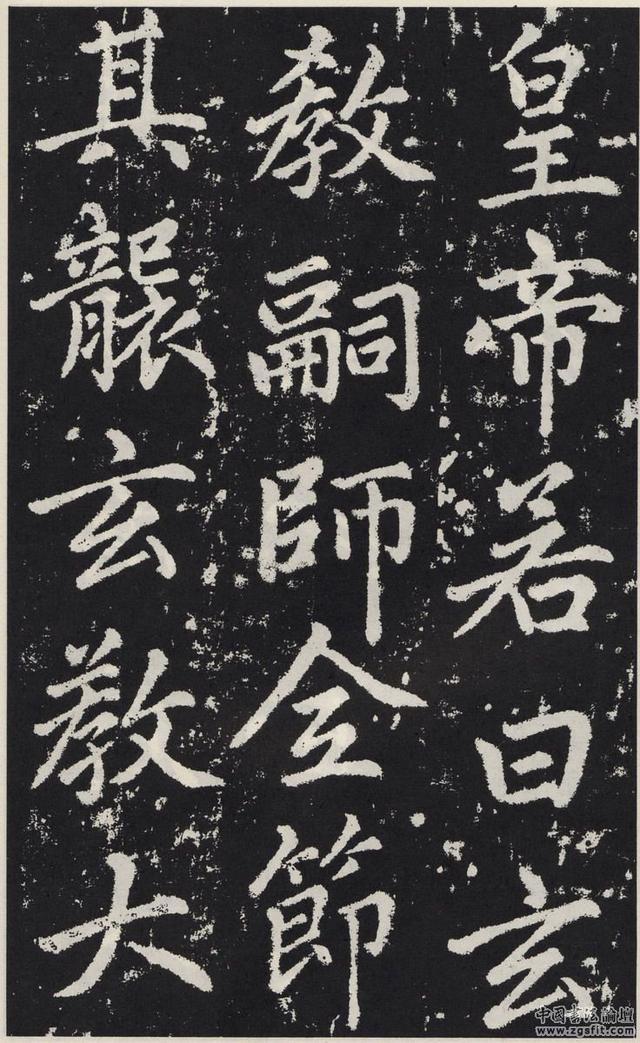 皇帝若曰玄
教嗣師全節
其襲玄教大
中國書法論壇
www.zgsflt.com